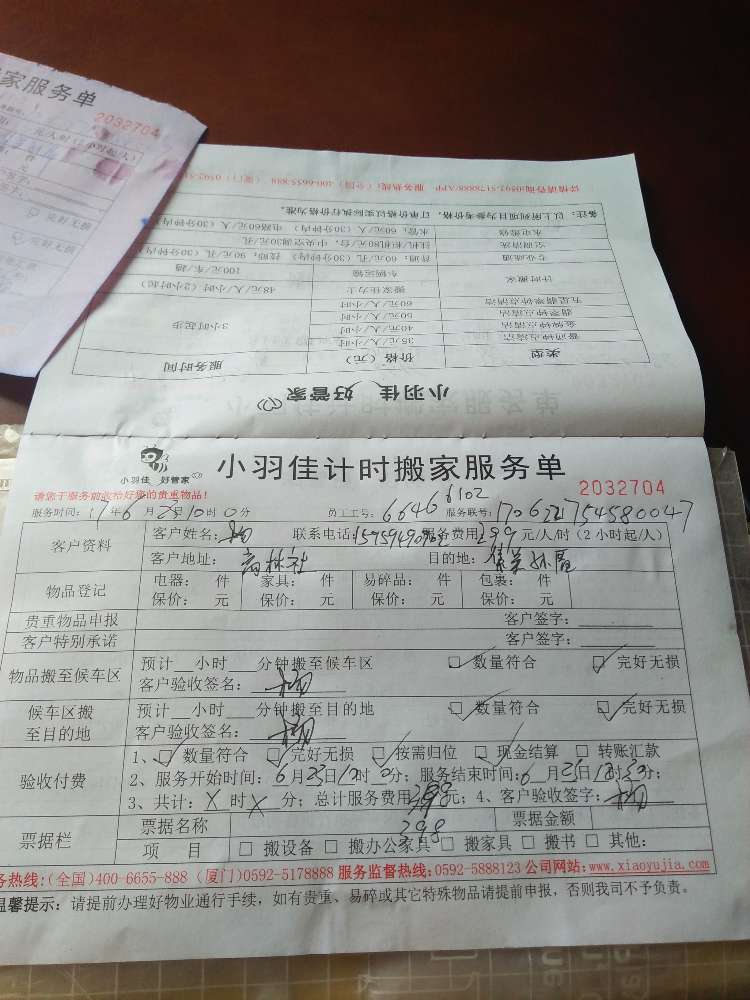 家服务单
2032704
元/人/时(2小时起/人)
详情请咨询0592-5178000/APP 服务热线:(全国)400-6655-888 (厦门)0592-51
备注:以上所列项目为参考价格,订单价格以实际执行价格为准。
水电维修 水管:60元/人(30分钟内) 电路60元/人(30分钟内)
空调清洗 挂机柜机80元/台;中央空调30元/孔
专业疏通 普通:60元(30分钟内) 技师:90元/孔(30分钟内)
计时搬家 车辆运输 100元/车/趟
搬家住力士 48元/人/小时(2小时起)
五星级钟点清洁 60元/人/小时
翡翠钟点清洁 50元/人/小时
金牌钟点清洁 40元/人/小时 3小时起步
普通钟点清洁 35元/人/小时
类型 价格(元) 服务时间
小羽佳 好管家
小羽佳 好管家
小羽佳计时搬家服务单
2032704
请您于服务前收拾好您的贵重物品!
服务时间:17年6月23日10时0分 员工工号:6646 6102 服务联号:
客户资料 客户姓名:杨 联系电话: 服务费用299元/人/时(2小时起/人)
客户地址:高林社 目的地:
物品登记 电器: 件 家具: 件 易碎品: 件 包裹: 件
保价: 元 保价: 元 保价: 元 保价: 元
贵重物品申报 客户签字:
客户特别承诺 客户签字:
物品搬至候车区 预计__小时__分钟搬至候车区 数量符合 完好无损
客户验收签名:杨
候车区搬至目的地 预计__小时__分钟搬至目的地 数量符合 完好无损
客户验收签名:杨
验收付费 1、数量符合 完好无损 按需归位 现金结算 转账汇款
2、服务开始时间:6月23日10时0分;服务结束时间:6月23日
3、共计:X时X分;总计服务费用 元;4、客户验收签字:杨
298
票据栏 票据名称 票据金额
项 目 搬设备 搬办公家具 搬家具 搬书 其他:
务热线:(全国)400-6655-888 (厦门)0592-5178888 服务监督热线:0592-5888123 公司网站:www.xiaoyujia.com
温馨提示:请提前办理好物业通行手续,如有贵重、易碎或其它特殊物品请提前申报,否则我司不予负责。